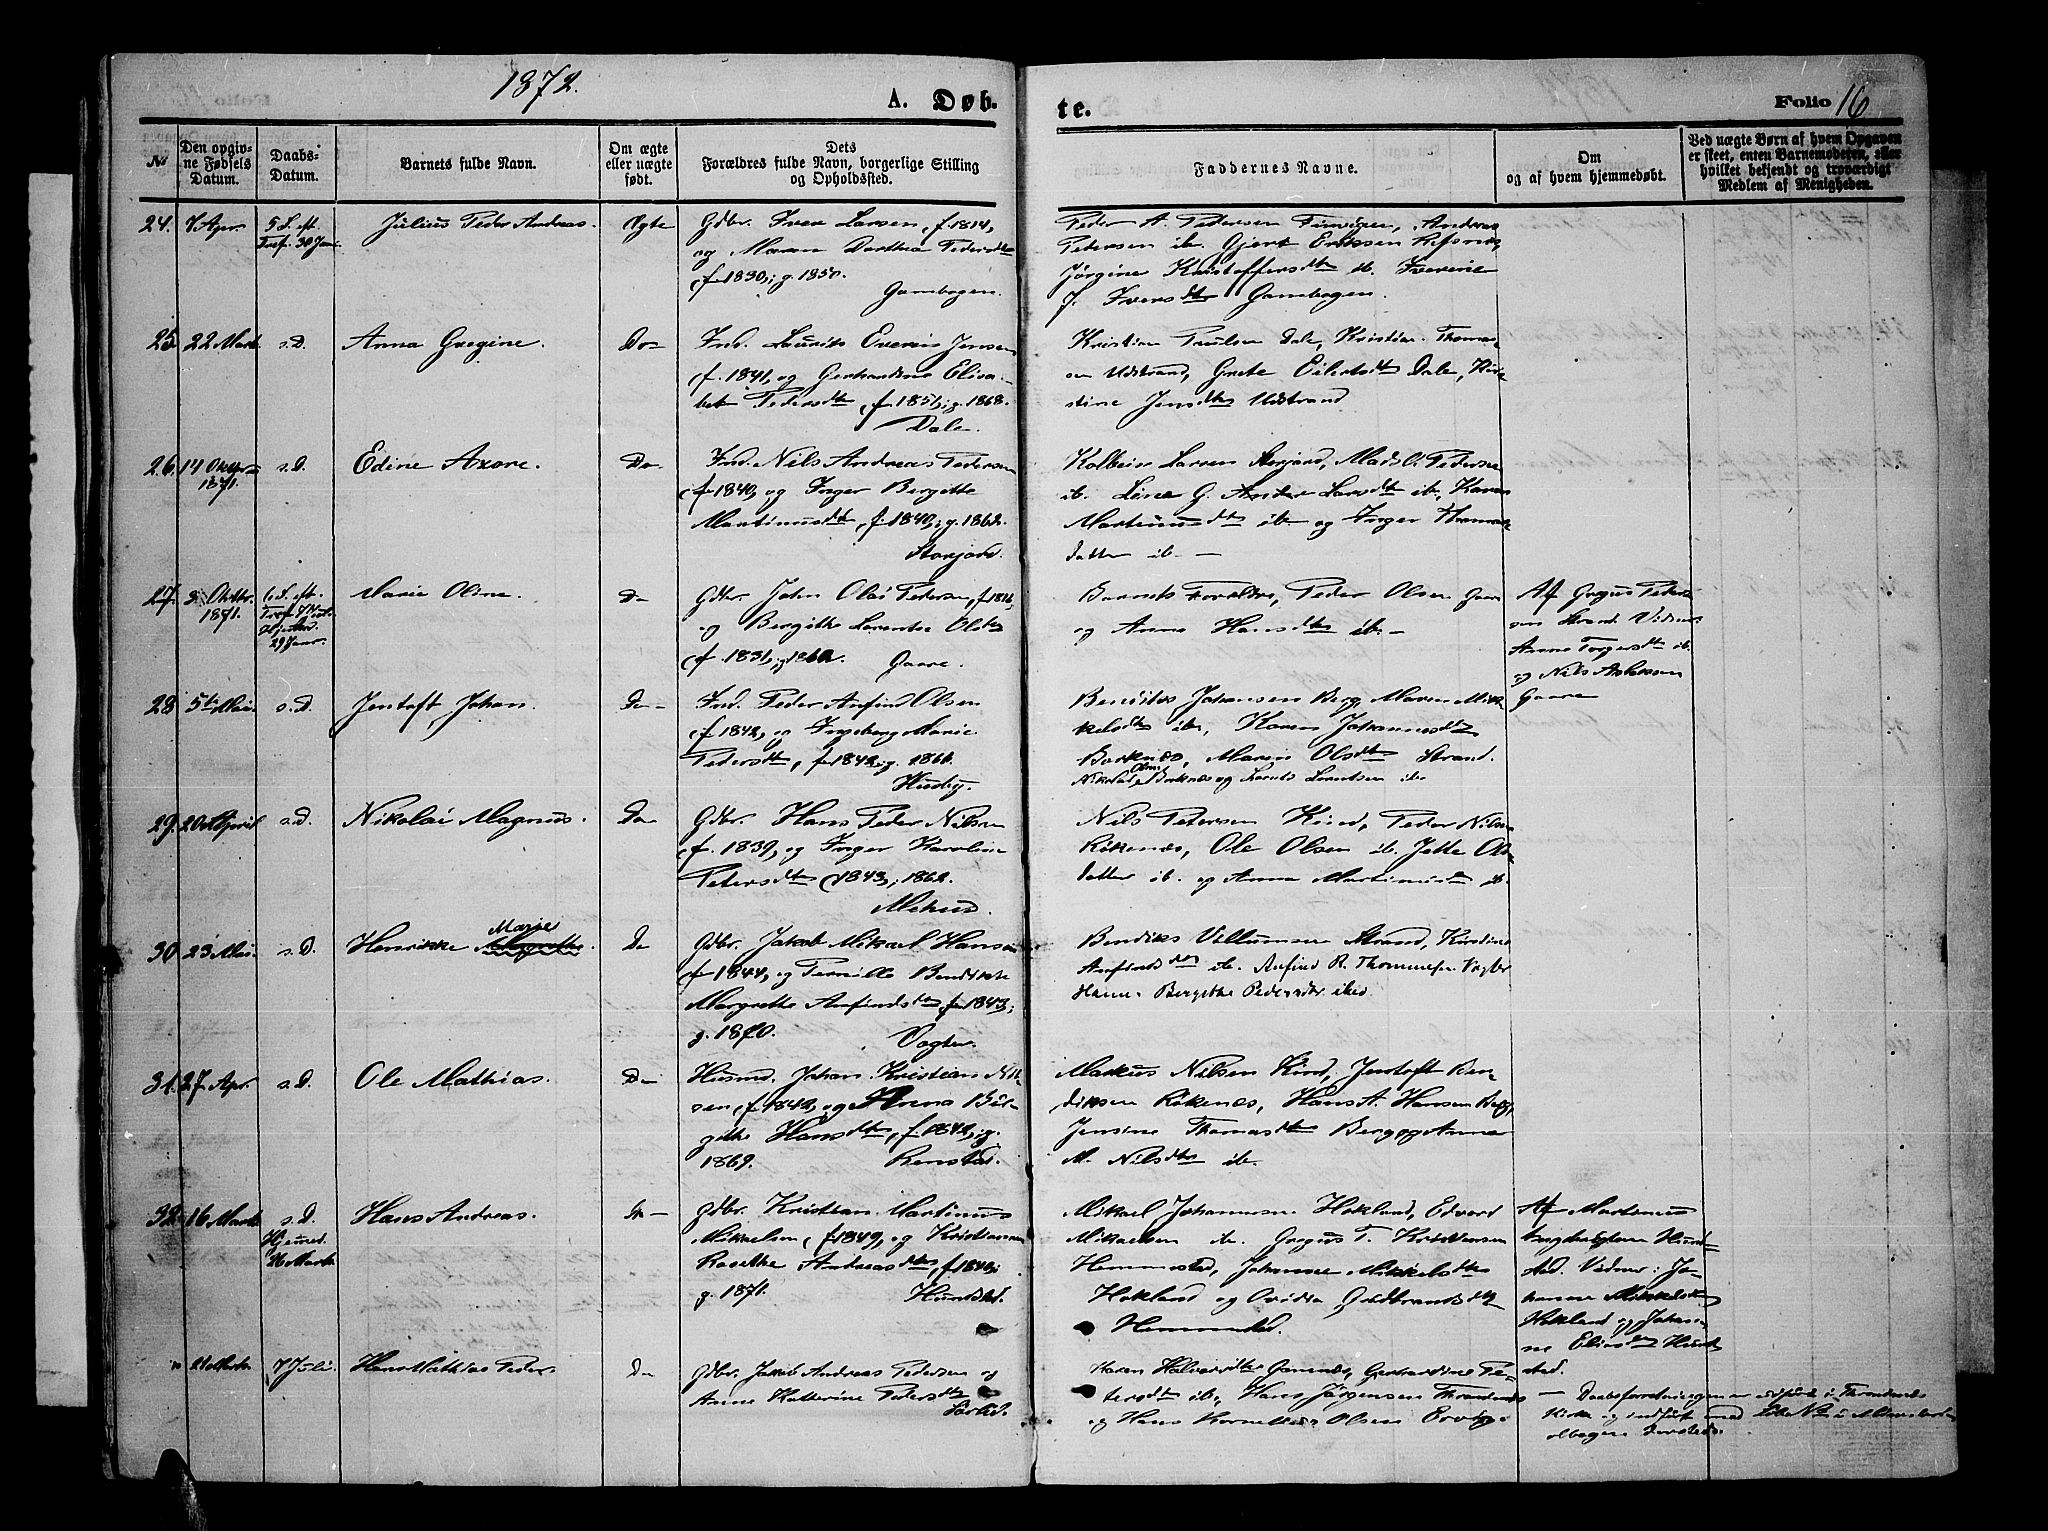 1872.
A. Døb.
te.
Folio 16
No
Den opgiv-
ne Fødsels
Datum.
Daabs-
Datum.
Barnets fulde Navn.
Om ægte
eller uægte
født.
Dets
Forældres fulde Navn, borgerlige Stilling
og Opholdssted.
Faddernes Navne.
Om
og af hvem hjemmedøbt.
Ved uægte Børn af hvem Opgaven
er skeet, enten Barnemoderen, eller
hvilket bekjendt og troværdigt
Medlem af Menigheden.
24. 7 Apr. 5 S. eft. Julius Peder Andreas. Ægte Gdbr. Iver Larsen, f. 1814,
Tref. 30 Juni
og Maren Dorthea Pedersdtr
f. 1830, g. 1850.
Gambogen.
Peder A. Pedersen Andreas
Petersen ib. Gjert Eriksen
Jørgine Kristoffersdtr ib. Iverine
J. Iversdtr Gambogen.
25 22 Marts s.D. Anna Gregine. Do- Ind. Laurits Jensen
f. 1841, og Elisa-
bet Pedersdtr, f. 1851, g. 1868.
Dale.
Kristian Dale, Kristian Thomas-
sen Udstrand, Grete Eilertsdtr Dale, Kir-
stine Jensdtr Udstrand
26. 14 Oktbr s.D. Edine Axore. Do Ind. Nils Andreas Pedersen
1871.
f. 1840, og Inger Bergitte
Martinusdtr, f. 1840, g. 1862.
Storjord.
Kolbein Larsen Storjord, Mads O. Pedersen
ib. Lina G. Larsdtr ib, Karen
Martinusdtr ib og Inger Thomas-
datter ib. —
27. Oktbr. 6 S. eft. Marie Oline. Do Gdbr. John Olai Pedersen, f. 1816,
1871. Tref. 7 Juli
Hjemd.
29 Januar.
og Bergithe Lorentse Olsdtr
f. 1831, g. 1862. Gaare.
Barnets Forældre, Peder Olsen Gaare
og Anne Hansdtr ib. —
Af Gregus Peder-
sen Strand. Vidner
Anne Torgersdtr ib.
og Nils
Gaare
28 5te Mai s.D. Jentoft Johan. Do- Ind. Peder Anfind Olsen
f. 1842, og Ingeborg Marie
Pedersdtr, f. 1842, g. 1866.
Husby.
Johansen Berg, Maren Mik-
kelsdtr ib, Karen Johannesdtr
Borknes, Maren Olsdtr Strand.
Nikolai Olsen Borknes og Lorents Lorentsen ib
29. 20 April s.D. Nikolai Magnus. Do- Gdbr. Hans Peder Nilsen
f. 1839, og Inger Karoline
Petersdtr (1843, 1862.
Melhus.
Nils Petersen Kind, Peder Nilsen
Røkenæs, Ole Olsen ib. Jette Ols-
datter ib. og Anna Martinusdtr ib.
30 23 Mai. s.D. Henrikke Marie Margrethe. Do Gdbr. Jakob Mikael Hansen
f. 1844, og Pernille Bendikte
Margrethe Anfindsdtr f. 1843,
g. 1870. Vogter.
Bendiks Villumsen Strand, Kirstine
Anfindsdtr ib. Anfind R. Thommesen Vogter
Hanna Bergithe Pedersdtr. ibid.
31. 27 Apr. s.D. Ole Mathias. Do- Husmd. Johan Kristian Nil-
sen, f. 1842, og Anna Bir-
gitte Hansdtr, f. 1842, g.
1869. Renstad.
Markus Nilsen Kind, Jentoft Ben-
diksen Røkenæs, Hans A. Hansen Berg,
Jensine Thomasdtr Berg og Anne
M. Nilsdtr ib.
32. 16 Marts s.D. Hans Andreas. Do- Gdbr. Kristian Martinus
Hjemd.
26 Marts
Mikaelsen, f. 1849, og Kristianna
Rasethe Andreasdtr, f. 1848,
g. 1871. Hundstad.
Mikael Johannesen Hokland, Edvard
Mikaelsen ib. Gregus T. Kristensen
Hemmestad, Johanne Mikkelsdtr
Hokland og Ovidia Guldbrandsdtr
Hemmestad.
Af Martinus
Hund-
stad. Vidner: Jo-
hanne Mikkelsdtr
Hokland og Johan-
ne Eliasdtr Hund-
stad.
21 Marts 7 Juli. Hans Mathias Peder. Do Gdbr. Jakob Andreas Petersen og
Anne Katherine Petersdtr
Sørlid.
Maren Halvorsdtr Gamnæs, Gerhardine Pe-
tersdtr ib, Hans Jørgensen Trondenæs
og Hans Kornelius Olsen Ervig.
— Daabsforretningen er udført i Trondenæs
Kirke og indført med